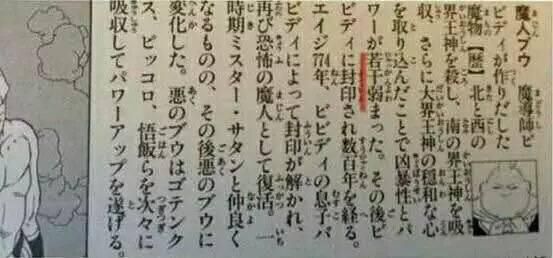 魔人ブウ 魔導師ビ
ビディが作りだした
魔物【歴】北と西の
界王神を殺し、南の界王神を吸
収、さらに大界王神の穏和な心
を取り込んだことで凶暴性とパ
ワーが若干弱まった。その後ビ
ビディに封印され数百年を経る。
エイジ774年、ビビディの息子バ
ビディによって封印が解かれ、
再び恐怖の魔人として復活。一
時期ミスター・サタンと仲良く
なるものの、その後悪のブウに
変化した。悪のブウはゴテンク
ス、ピッコロ、悟飯らを次々に
吸収してパワーアップを遂げる。